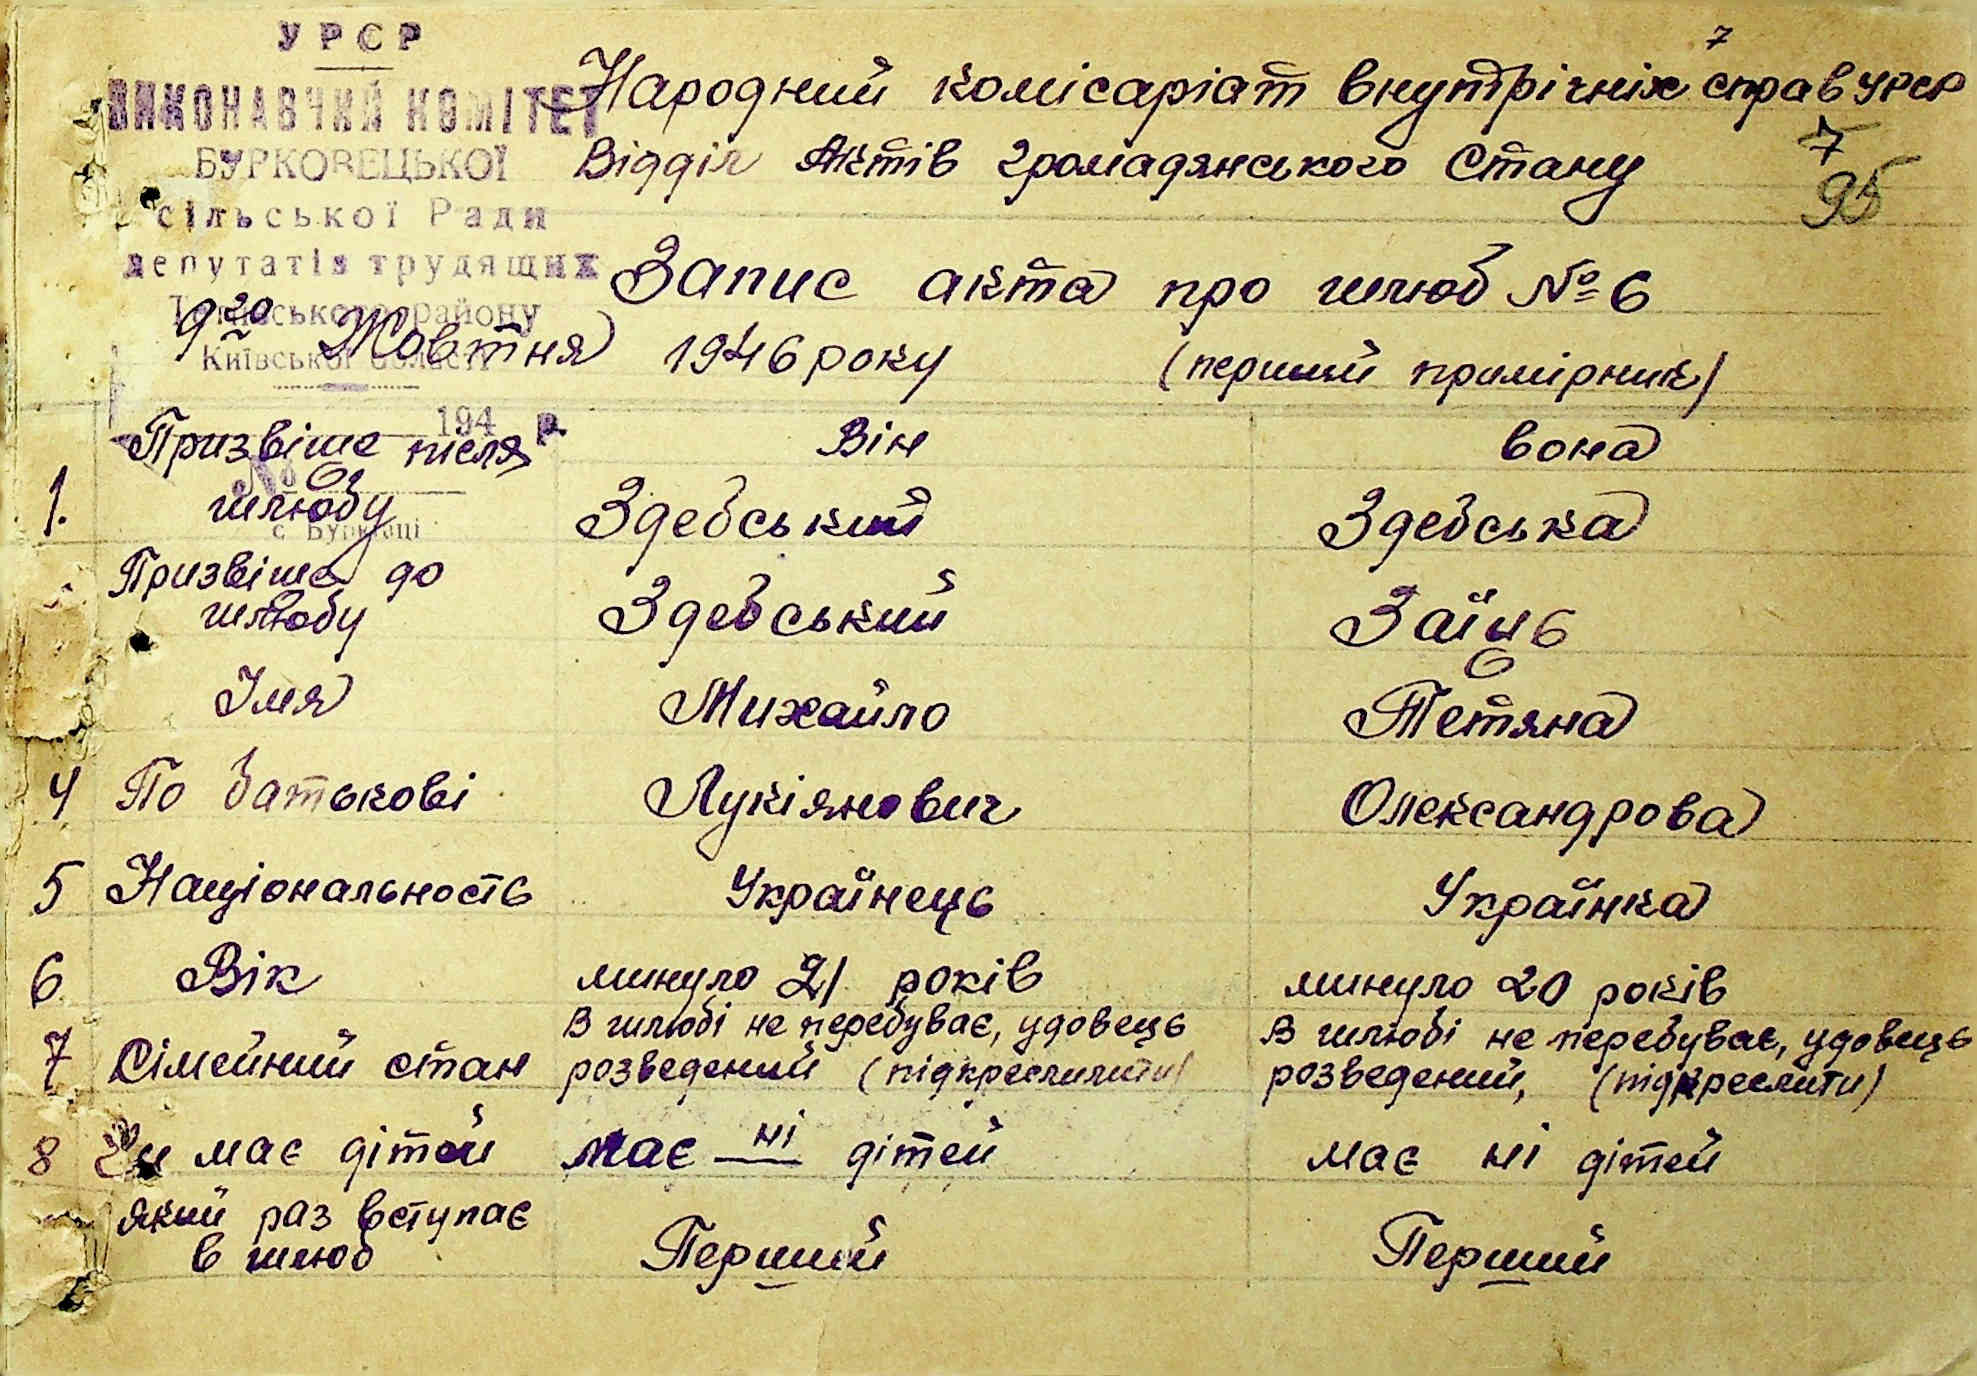 УРСР
ВИКОНАВЧИЙ КОМІТЕТ
БУРКОВЕЦЬКОЇ
сільської Ради
депутатів трудящих
району
Київської області
194 р.
№ 6
7
Народний комісаріат внутрічніх справ УРСР
Відділ Актів громадянського Стану
7
95
Запис акта про шлюб № 6
9го Жовтня 1946 року (перший примірник)
Він вона
1. Призвіше після шлюбу Здебський Здебська
Призвіше до шлюбу Здебський Заїць
Імя Михайло Тетяна
4 По батькові Лукіянович Олександрова
5 Національность Українець Українка
6 Вік минуло 21 років минуло 20 років
7 Сімейний стан В шлюбі не перебуває, удовець розведений (підкреслити) В шлюбі не перебуває, удовець розведений, (підкреслити)
8 Чи має дітей має ні дітей має ні дітей
який раз вступає в шлюб Перший Перший